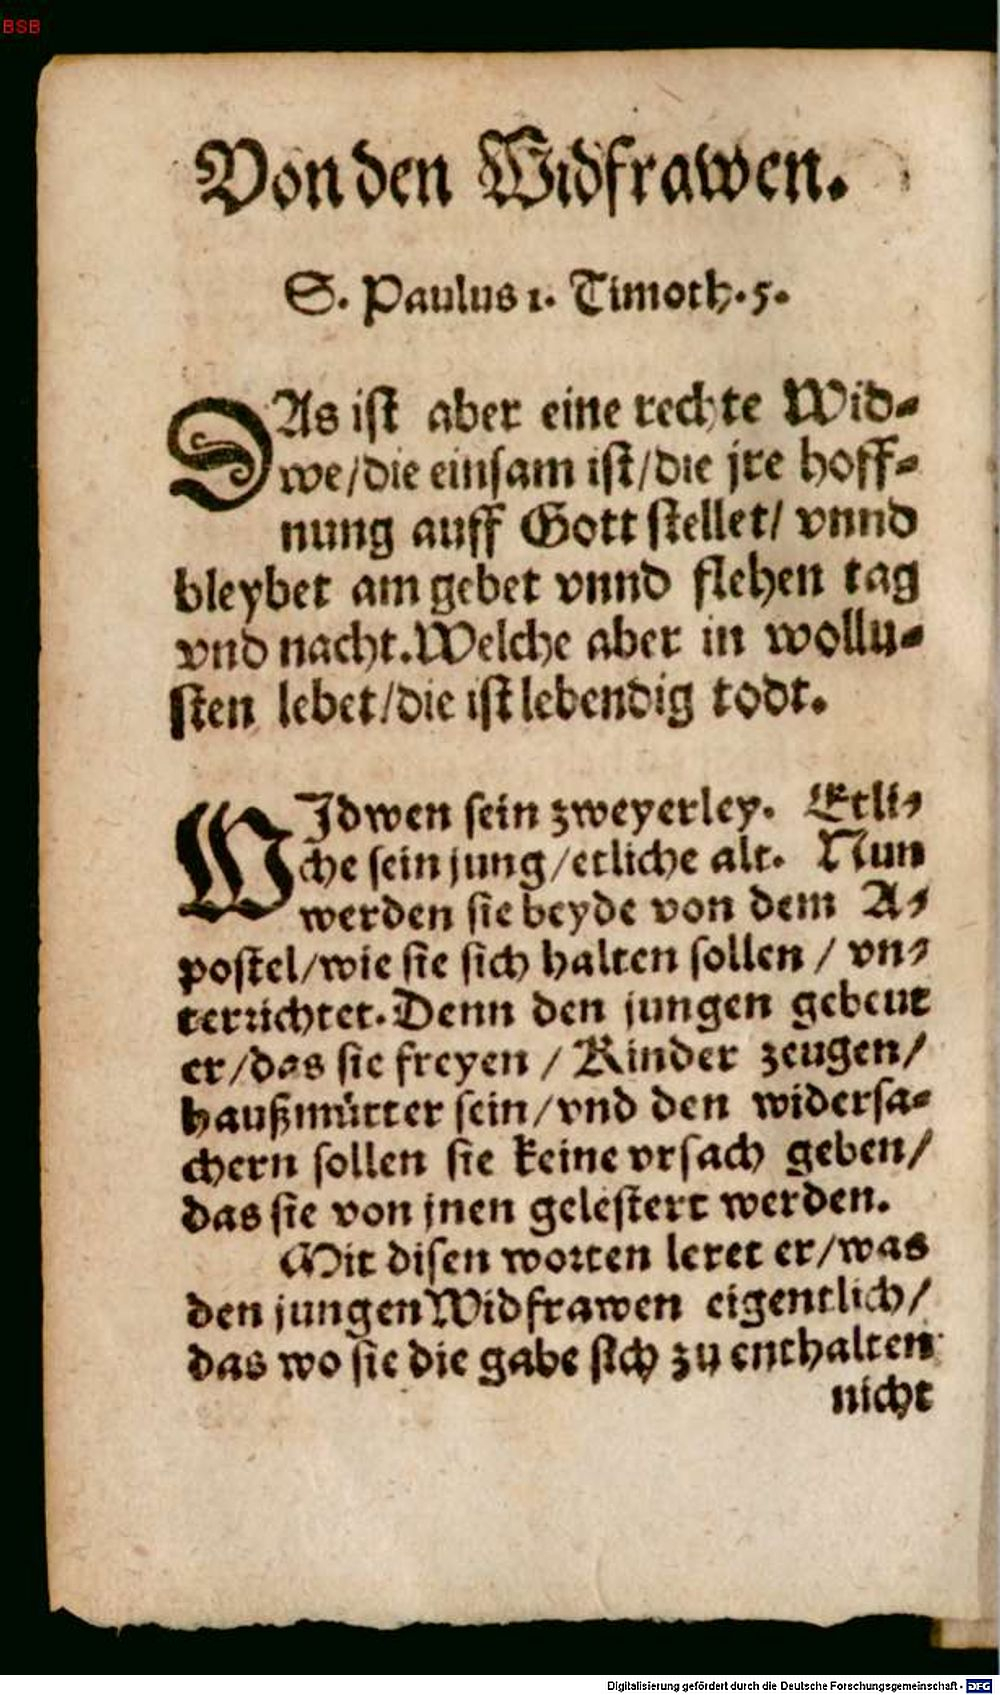 BSB
Von den Widfrawen.
S. Paulus 1. Timoth. 5.
DAs ist aber eine rechte Wid-
we/die einsam ist/die jre hoff-
nung auff Gott stellet/ vnnd
bleybet am gebet vnnd flehen tag
vnd nacht. Welche aber in wollu-
sten lebet/die ist lebendig todt.
WJdwen sein zweyerley. Etli-
che sein jung/etliche alt. Nun
werden sie beyde von dem A-
postel/wie sie sich halten sollen / vn-
terrichtet. Denn den jungen gebeut
er/das sie freyen / Kinder zeugen/
haußmütter sein/vnd den widersa-
chern sollen sie keine vrsach geben/
das sie von jnen gelestert werden.
Mit disen worten leret er/was
den jungen Widfrawen eigentlich/
das wo sie die gabe sich zu enthalten
nicht
Digitalisierung gefördert durch die Deutsche Forschungsgemeinschaft - DFG